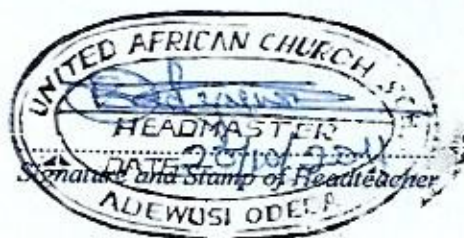 UNITED AFRICAN CHURCH SCH
HEADMASTER
DATE
Signature and Stamp of Headteacher
ADEWUSI